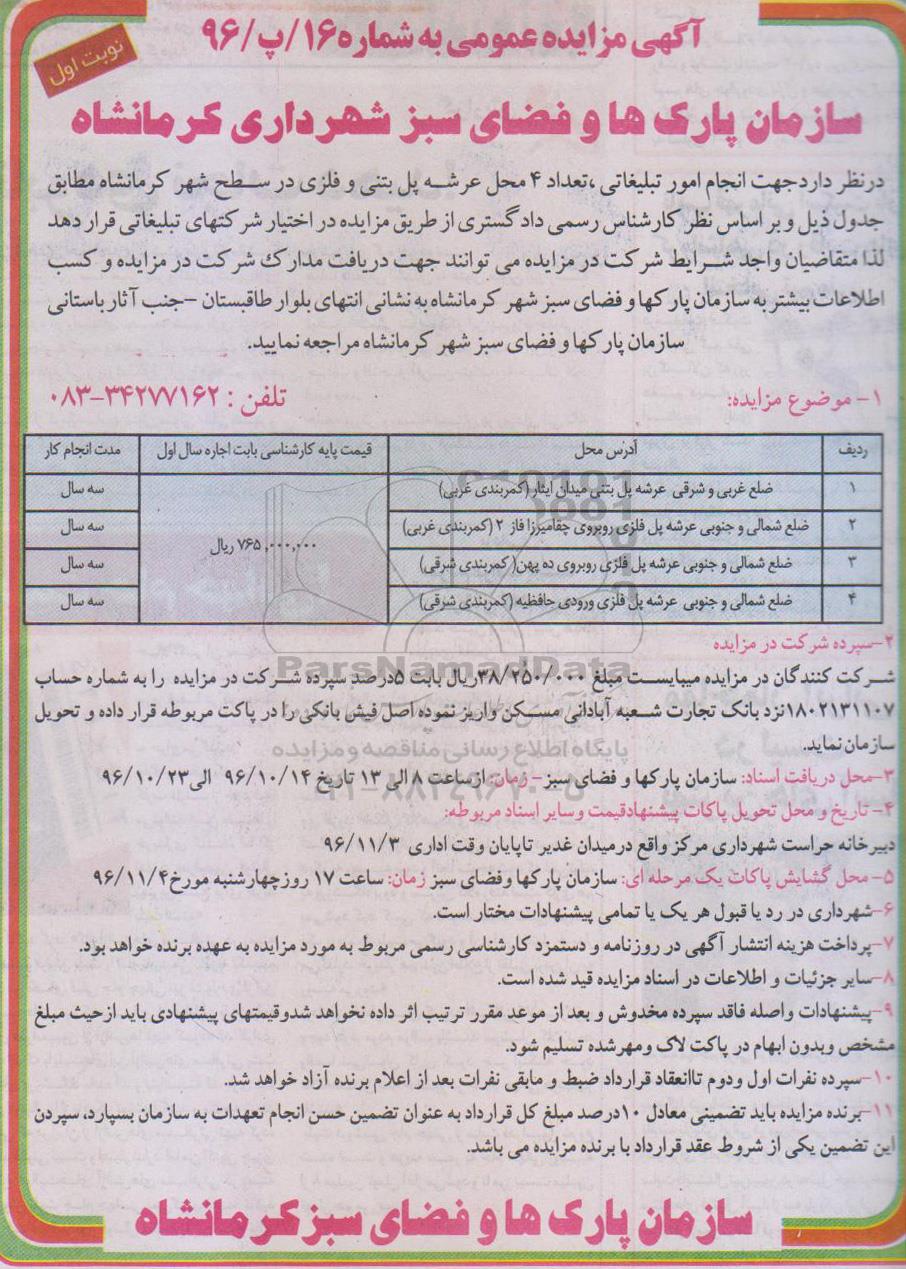 آگهی مزایده عمومی به شماره ۱۶/پ/۹۶
نوبت اول
سازمان پارک ها و فضای سبز شهرداری کرمانشاه
درنظر داردجهت انجام امور تبلیغاتی ،تعداد ۴ محل عرشه پل بتنی و فلزی در سطح شهر کرمانشاه مطابق
جدول ذیل و بر اساس نظر کارشناس رسمی دادگستری از طریق مزایده در اختیار شرکتهای تبلیغاتی قرار دهد
لذا متقاضیان واجد شرایط شرکت در مزایده می توانند جهت دریافت مدارک شرکت در مزایده و کسب
اطلاعات بیشتر به سازمان پارکها و فضای سبز شهر کرمانشاه به نشانی انتهای بلوار طاقبستان -جنب آثار باستانی
سازمان پارکها و فضای سبز شهر کرمانشاه مراجعه نمایید.
۱- موضوع مزایده: تلفن : ۳۴۲۷۷۱۶۲-۰۸۳
ردیف آدرس محل قیمت پایه کارشناسی بابت اجاره سال اول مدت انجام کار
۱ ضلع غربی و شرقی عرشه پل بتنی میدان ایثار (کمربندی غربی) سه سال
۲ ضلع شمالی و جنوبی عرشه پل فلزی روبروی چقامیرزا فاز ۲ (کمربندی غربی) سه سال
۷۶۵,۰۰۰,۰۰۰ ریال
۳ ضلع شمالی و جنوبی عرشه پل فلزی روبروی ده پهن( کمربندی شرقی) سه سال
۴ ضلع شمالی و جنوبی عرشه پل فلزی ورودی حافظیه (کمربندی شرقی) سه سال
۲-سپرده شرکت در مزایده
ParsNamadData
شرکت کنندگان در مزایده میبایست مبلغ ۳۸/۲۵۰/۰۰۰ریال بابت ۵درصد سپرده شرکت در مزایده را به شماره حساب
۱۸۰۲۱۳۱۱۰۷نزد بانک تجارت شعبه آبادانی مسکن واریز نموده اصل فیش بانکی را در پاکت مربوطه قرار داده و تحویل
سازمان نماید.
پایگاه اطلاع رسانی مناقصه و مزایده
۳-محل دریافت اسناد: سازمان پارکها و فضای سبز- زمان: ازساعت ۸ الی ۱۳ تاریخ ۹۶/۱۰/۱۴ الی۹۶/۱۰/۲۳
۴- تاریخ و محل تحویل پاکات پیشنهادقیمت وسایر اسناد مربوطه:
دبیرخانه حراست شهرداری مرکز واقع درمیدان غدیر تاپایان وقت اداری ۹۶/۱۱/۳
۵- محل گشایش پاکات یک مرحله ای: سازمان پارکها وفضای سبز زمان: ساعت ۱۷ روزچهارشنبه مورخ۹۶/۱۱/۴
۶-شهرداری در رد یا قبول هر یک یا تمامی پیشنهادات مختار است.
۷-پرداخت هزینه انتشار آگهی در روزنامه و دستمزد کارشناسی رسمی مربوط به مورد مزایده به عهده برنده خواهد بود.
۸-سایر جزئیات و اطلاعات در اسناد مزایده قید شده است.
۹-پیشنهادات واصله فاقد سپرده مخدوش و بعد از موعد مقرر ترتیب اثر داده نخواهد شدوقیمتهای پیشنهادی باید ازحیث مبلغ
مشخص وبدون ابهام در پاکت لاک ومهرشده تسلیم شود.
۱۰-سپرده نفرات اول ودوم تاانعقاد قرارداد ضبط و مابقی نفرات بعد از اعلام برنده آزاد خواهد شد.
۱۱-برنده مزایده باید تضمینی معادل ۱۰درصد مبلغ کل قرارداد به عنوان تضمین حسن انجام تعهدات به سازمان بسپارد، سپردن
این تضمین یکی از شروط عقد قرارداد با برنده مزایده می باشد.
سازمان پارک ها و فضای سبز کرمانشاه